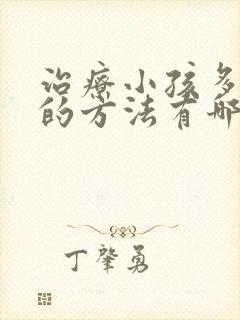 治疗小孩多
的方法有哪
丁肇勇